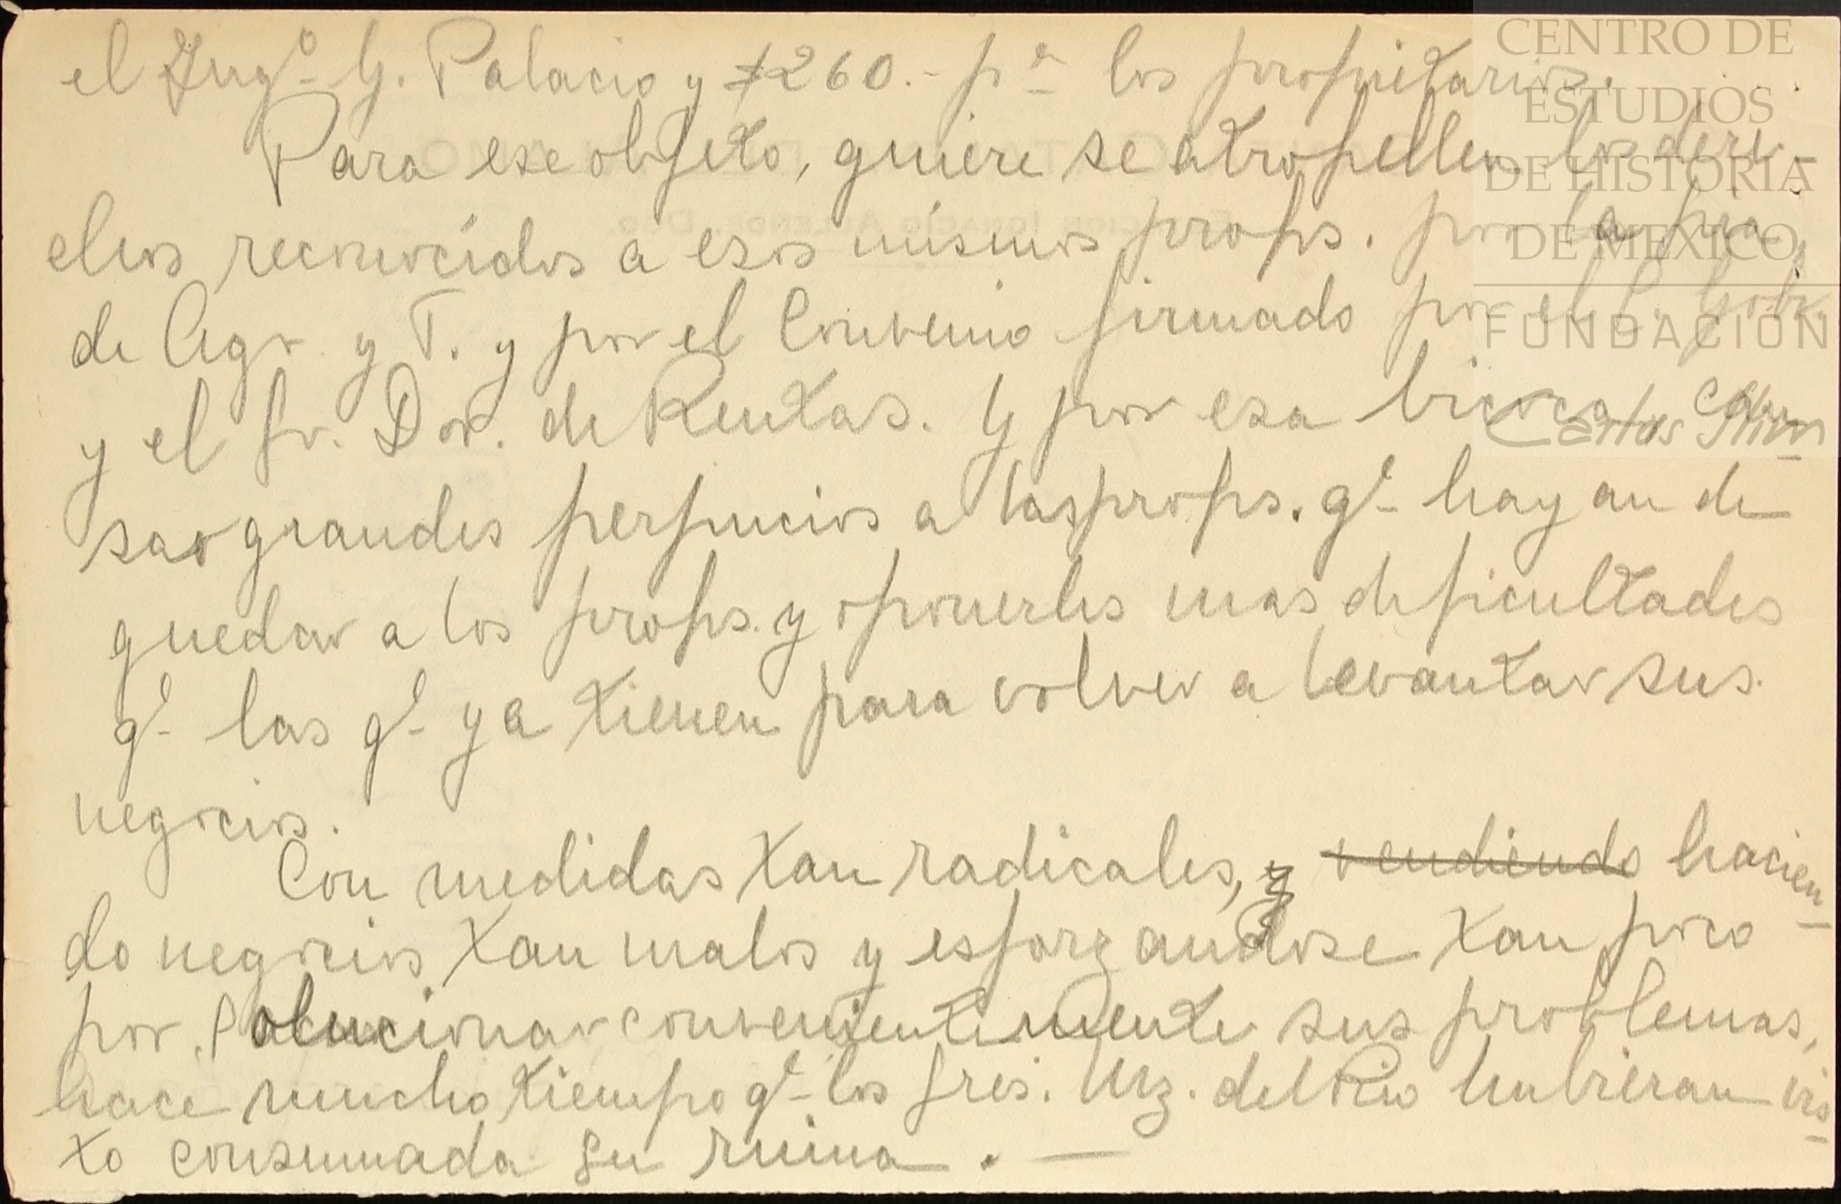 el Ingº. G. Palacio y $260.- pª los propietarios.
Para ese objeto, quiere se atropellen los dere-
chos reconocidos a esos mismos props. por la
de Agr. y T. y por el Convenio firmado por el C. Gobr.
y el Sr. Dor. de Rentas. Y por esa bicoca, cau-
sar grandes perjuicios a las props. qᵉ hayan de
quedar a los props. y oponerles mas dificultades
qᵉ las qᵉ ya tienen para volver a levantar sus
negocios.
Con medidas tan radicales, vendiendo hacien-
do negocios tan malos y esforzandose tan poco
por solucionar convenientemente sus problemas,
hace mucho tiempo qᵉ los Sres. Mz. del Rio hubieran vis-
to consumada su ruina. —
CENTRO DE
ESTUDIOS
DE HISTORIA
DE MEXICO
FUNDACION
Carlos Slim